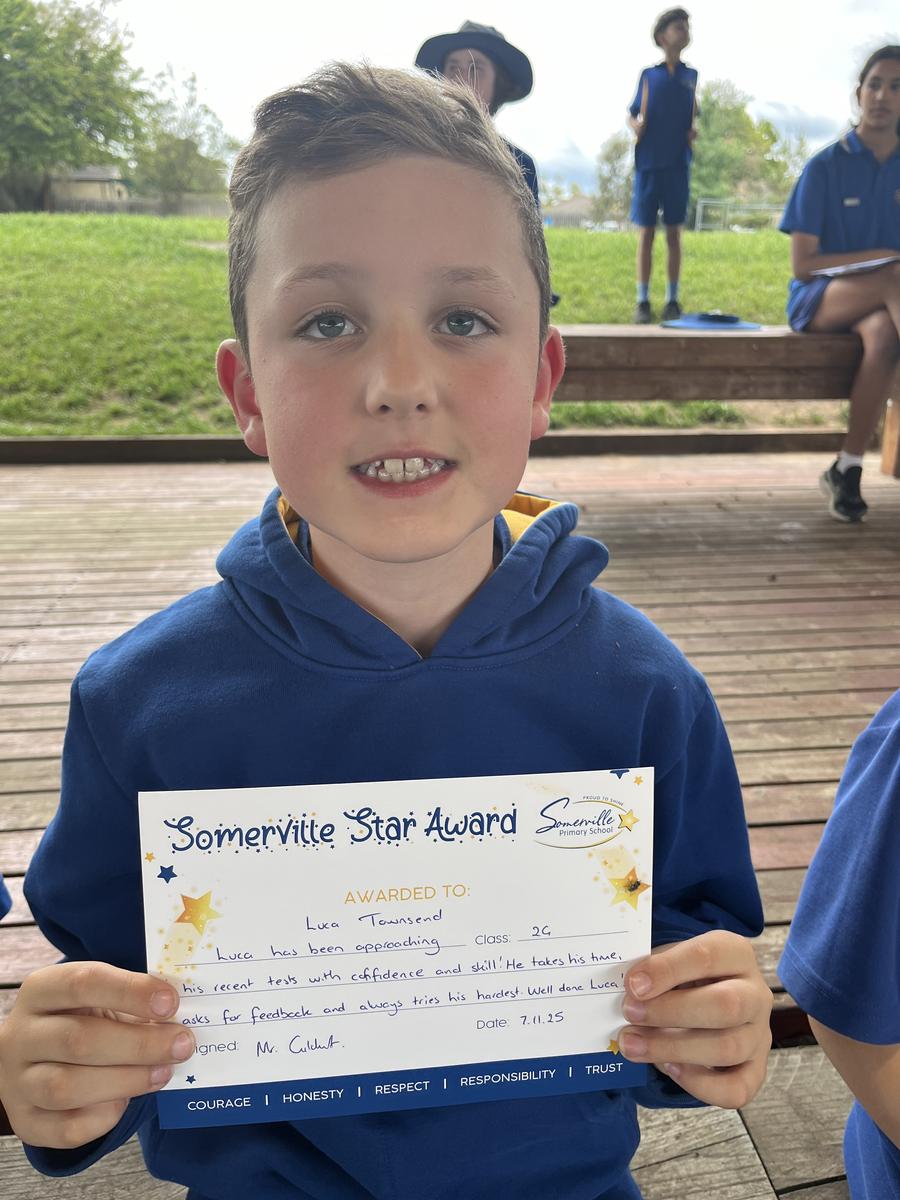 Somerville Star Award
PROUD TO SHINE
Somerville
Primary School
AWARDED TO:
Luca Townsend
Luca has been approaching Class: 2G
his recent tests with confidence and skill! He takes his time,
asks for feedback and always tries his hardest. Well done Luca!
igned: Mr. Date: 7.11.25
COURAGE | HONESTY | RESPECT | RESPONSIBILITY | TRUST